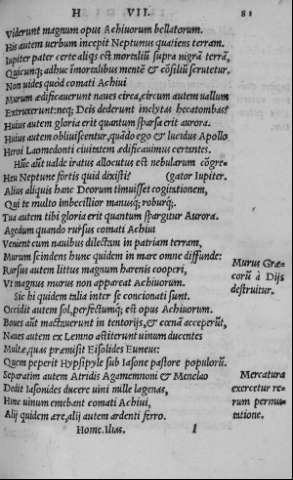 H VII. 81
Viderunt magnum opus Achiuorum bellatorum.
His autem uerbum incepit Neptunus quatiens terram.
Iupiter pater certe aliqs est mortaliũ supra nigrã terrã,
Quicunq; adhuc ĩmortalibus mentẽ & cõsiliũ scrutetur.
Non uides quòd comati Achiui
Murum ædificauerunt naues circa, circum autem uallum
Extruxerunt: neq; Deis dederunt inclytas hecatombas?
Huius autem gloria erit quantum sparsa erit aurora.
Huius autem obliuiscentur, quãdo ego & lucidus Apollo
Heroi Laomedonti ciuitatem ædificauimus certantes.
Hũc aũt ualde iratus allocutus est nebularum cõgre-
Heu Neptune fortis quid dixisti? (gator Iupiter.
Alius aliquis hanc Deorum timuisset cogitationem,
Qui te multo imbecillior manusq; roburq́;.
Tua autem tibi gloria erit quantum spargitur Aurora.
Agedum quando rursus comati Achiui
Venient cum nauibus dilectam in patriam terram,
Murum scindens hunc quidem in mare omne diffunde:
Rursus autem littus magnum harenis cooperi,
Vt magnus murus non appareat Achiuorum.
Murus Græ
corũ à Dijs
destruitur.
Sic hi quidem talia inter se concionati sunt.
Occidit autem sol, perfectumq; est opus Achiuorum.
Boues aũt mactauerunt in tentorijs, & cœnã acceperũt,
Naues autem ex Lemno astiterunt uinum ducentes
Multæ, quas præmisit Eisolides Euneus:
Quem peperit Hypsipyle sub Iasone pastore populorũ.
Separatim autem Atridis Agamemnoni & Menelao
Dedit Iasonides ducere uini mille lagenas,
Hinc uinum emebant comati Achiui,
Alij quidem ære, alij autem ardenti ferro.
Mercatura
exercetur re-
rum permu-
tatione.
Home. Ilias. l